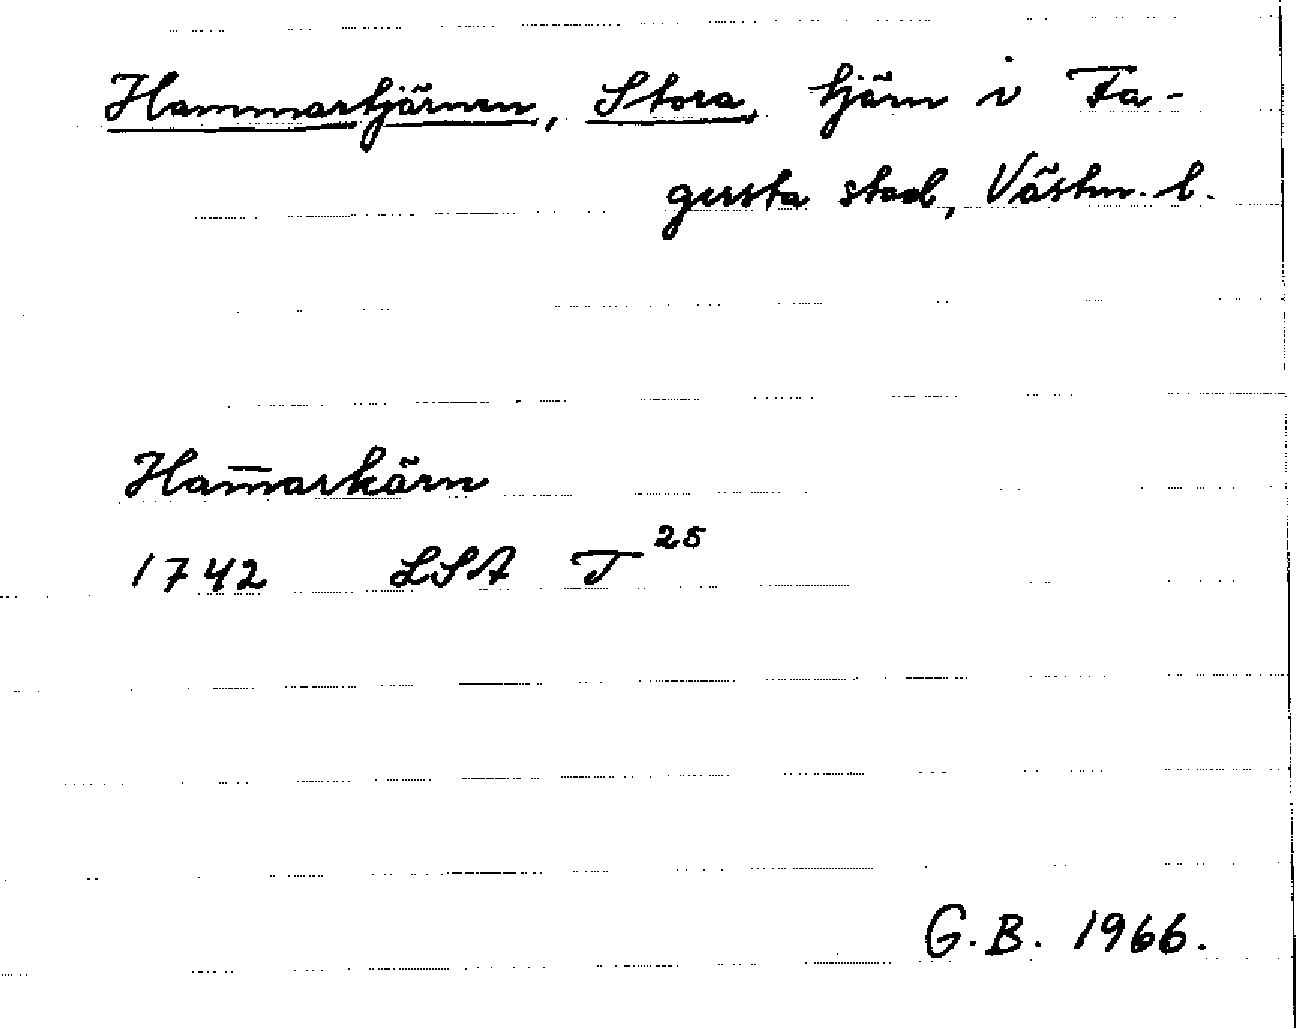 Hammartjärnen, Stora, tjärn i Fa-
gersta stad, Västm. l.
Ham̅arkärn
1742 LSA T²⁵
G.B. 1966.